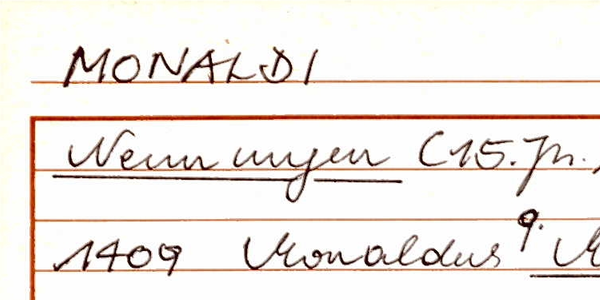 MONALDI
Nennungen (15. Jh.)
1409 Monaldus q.